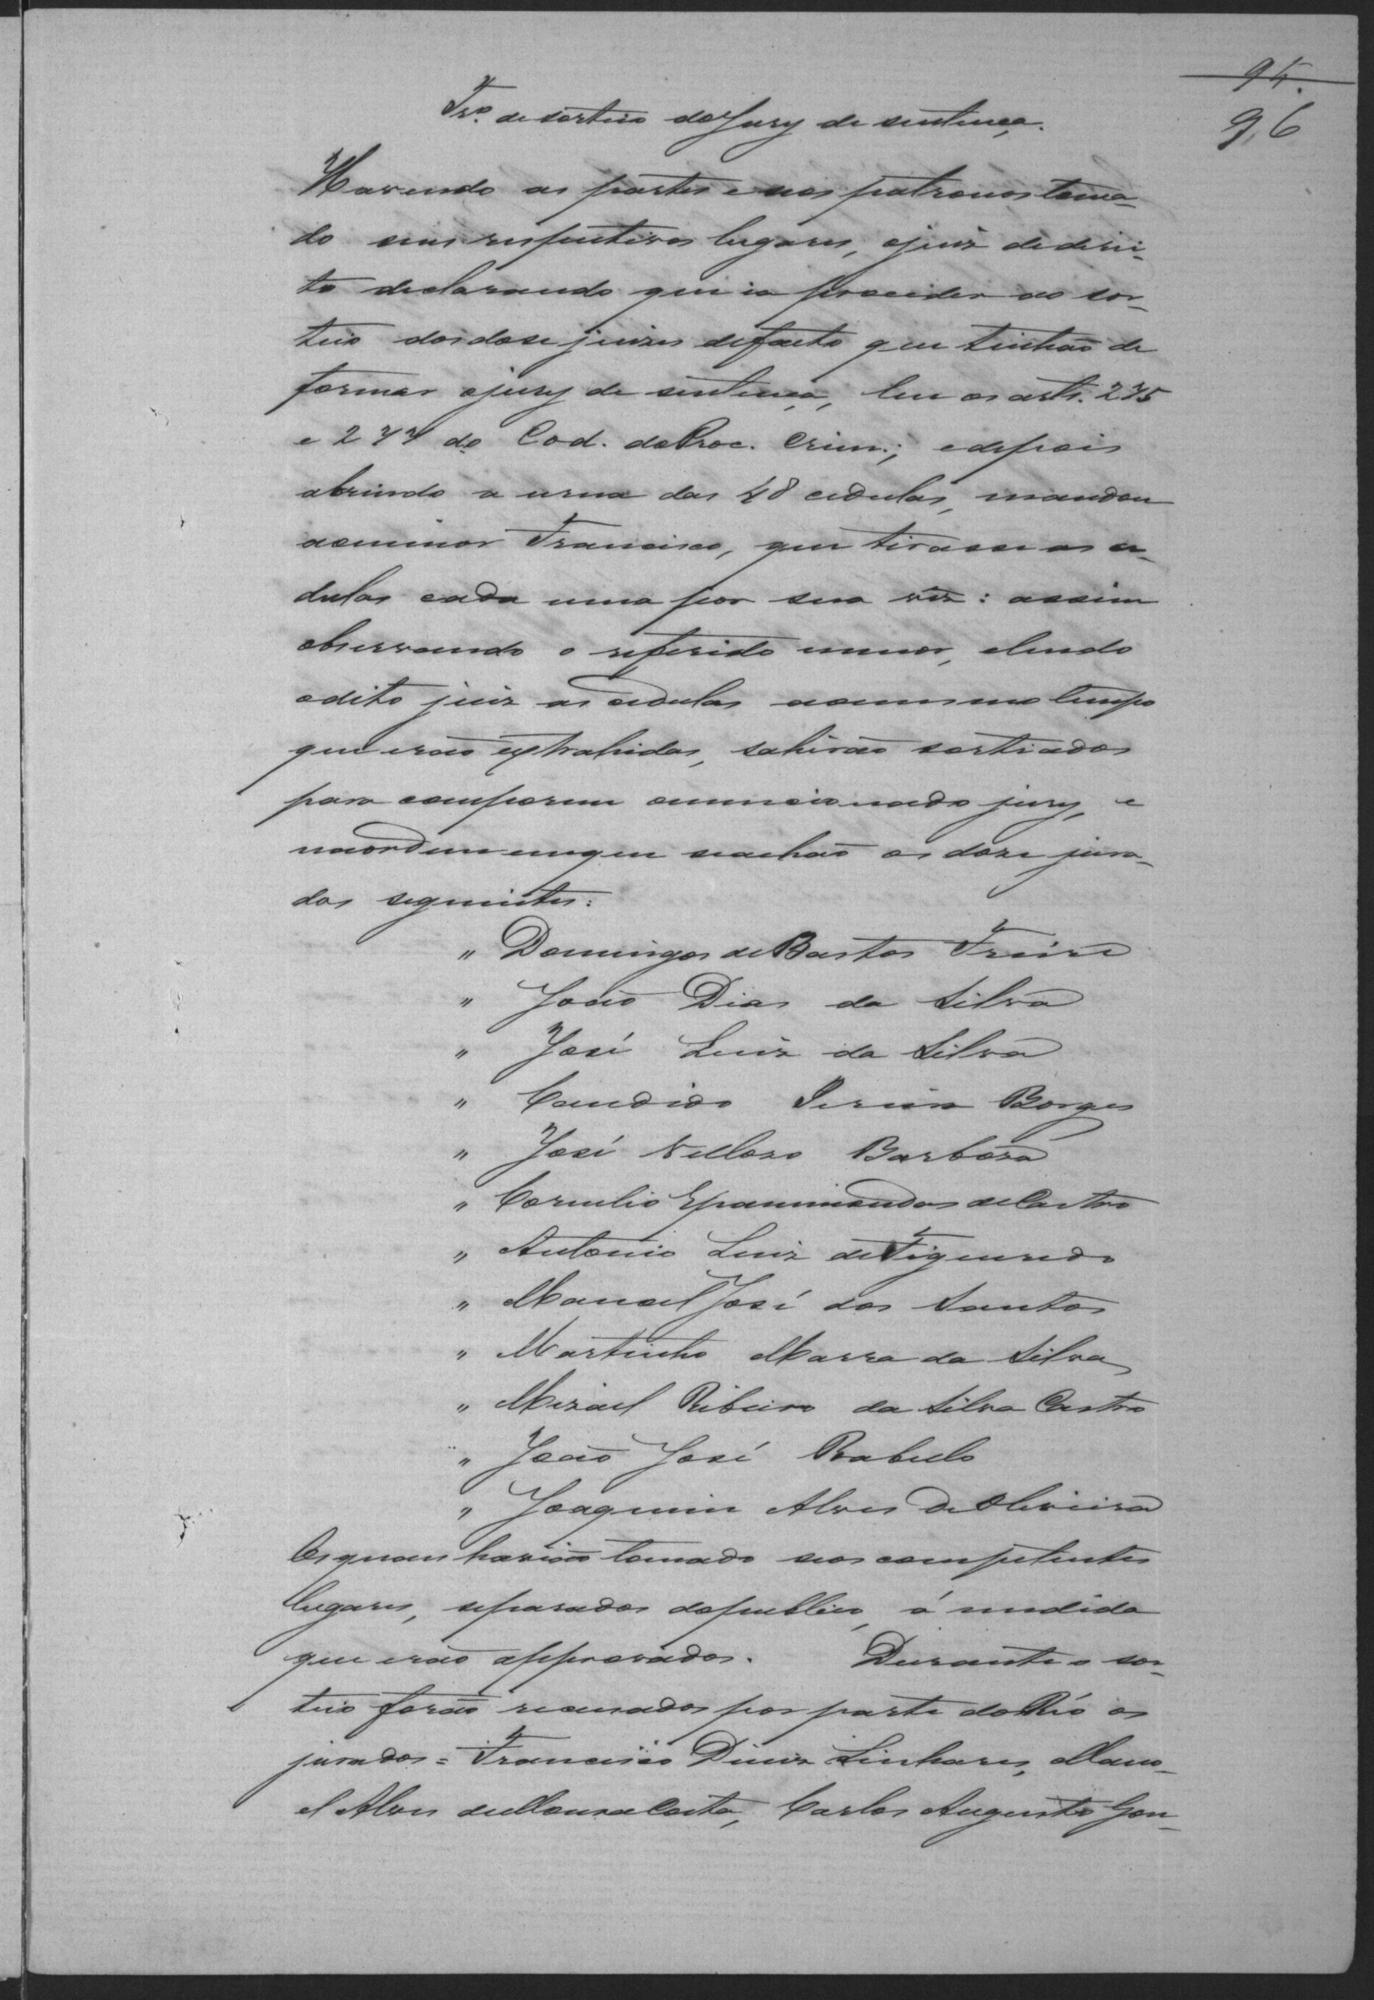 95.
96
Tr.º de sorteio do Jury de sentença.
Havendo as partes e seos patronos toma-
do seus respectivos lugares, o juiz de direi-
to declarando que ia proceder ao sor-
teio dos dose juizes de facto que tinhão de
formar o jury de sentença, leu os arts. 275
e 277 do Cod. do Proc. Crim.; e depois
abrindo a urna das 48 cedulas, mandou
ao menor Francisco, que tirasse as ce-
dulas cada uma por sua vez: assim
observando o referido menor, e lendo
o dito juiz as cedulas ao mesmo tempo
que erão extrahidas, sahirão sorteados
para comporem o mencionado jury, e
na ordem em que se achão os doze jura-
dos seguintes:
" Domingos de Bastos Freire
" João Dias da Silva
" José Luiz da Silva
" Candido Borges
" José Velloso Barbosa
" Cornelio Epaminondas de Castro
" Antonio Luiz de Figueredo
" Manoel José dos Santos
" Martinho Marra da Silva
" Mizael Ribeiro da Silva Castro
" João José Rabello
" Joaquim Alves de Oliveira
Os quaes havião tomado seos competentes
lugares, separados do publico, á medida
que erão approvados. Durante o sor-
teio forão recusados por parte do Réo os
jurados = Francisco Diniz Linhares, Mano-
el Alves de Moura Costa, Carlos Augusto Gon-